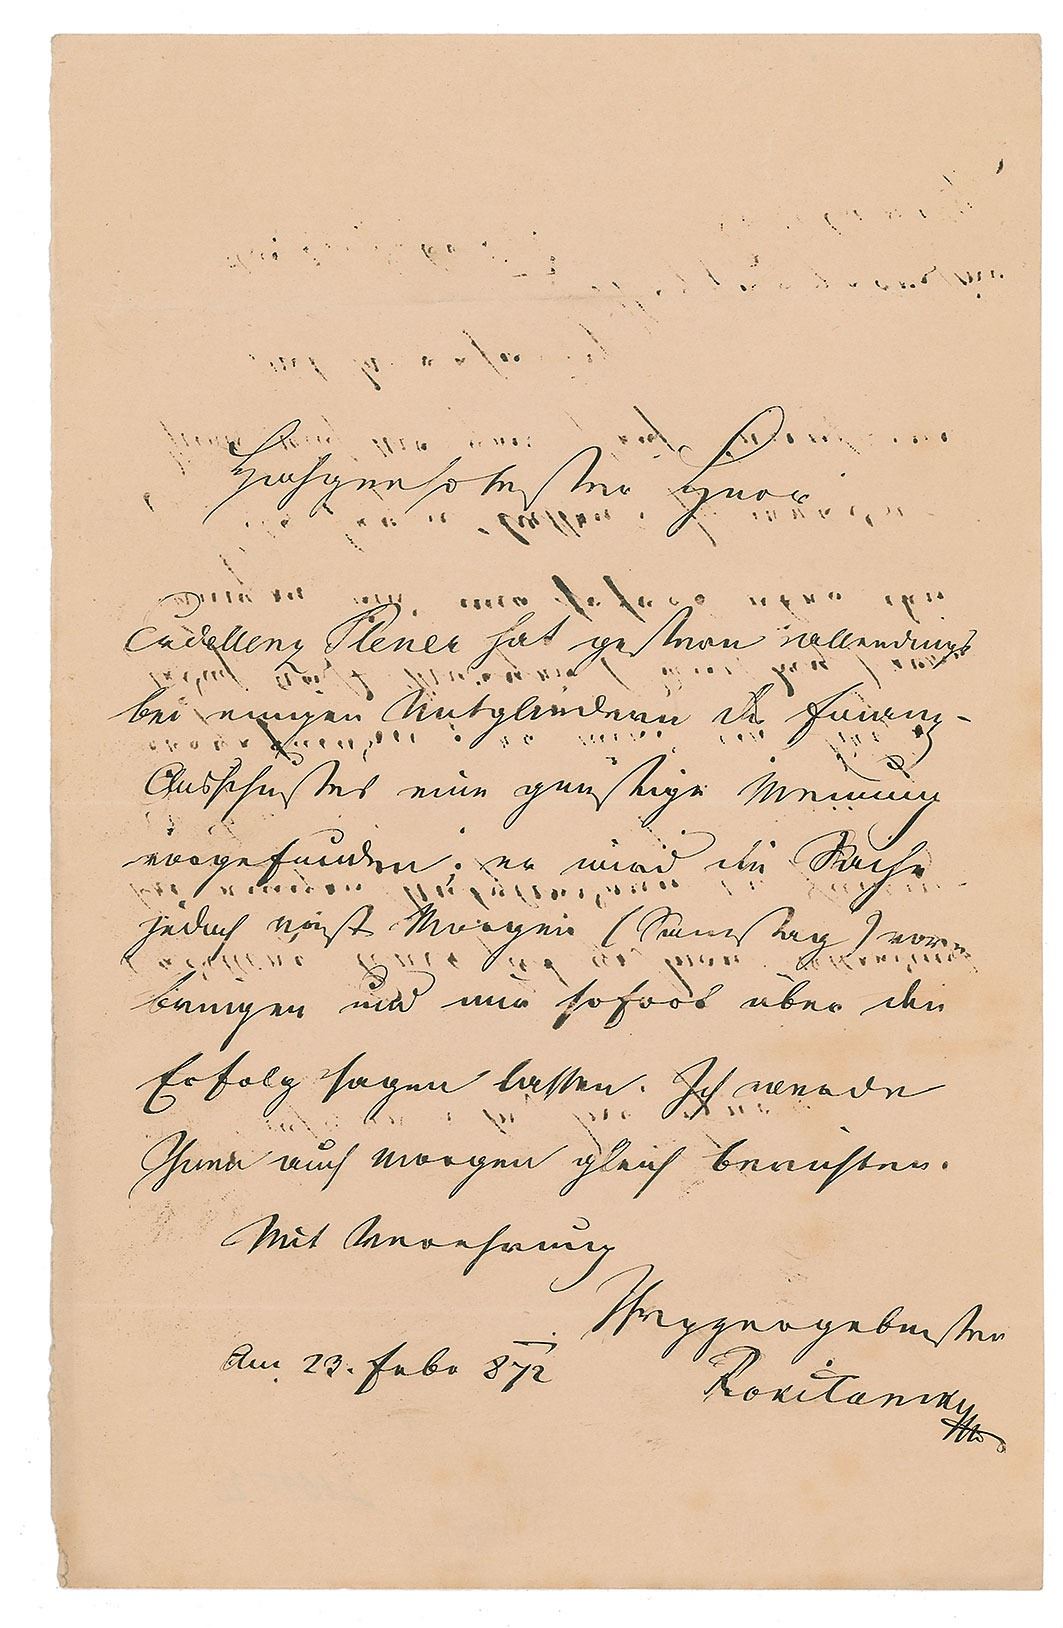 Hochgeehrtester Herr
Excellenz Plener hat gestern allerdings
bei einigen Mitgliedern des Finanz-
Ausschußes eine günstige Meinung
vorgefunden; er wird die Sache
jedoch erst Morgen (Samstag) vor-
bringen und mir sofort über den
Erfolg sagen lassen. Ich werde
Ihnen auch morgen gleich berichten.
Mit Verehrung
Ihr ergebenster
Am 23. Febr 872
Rokitansky